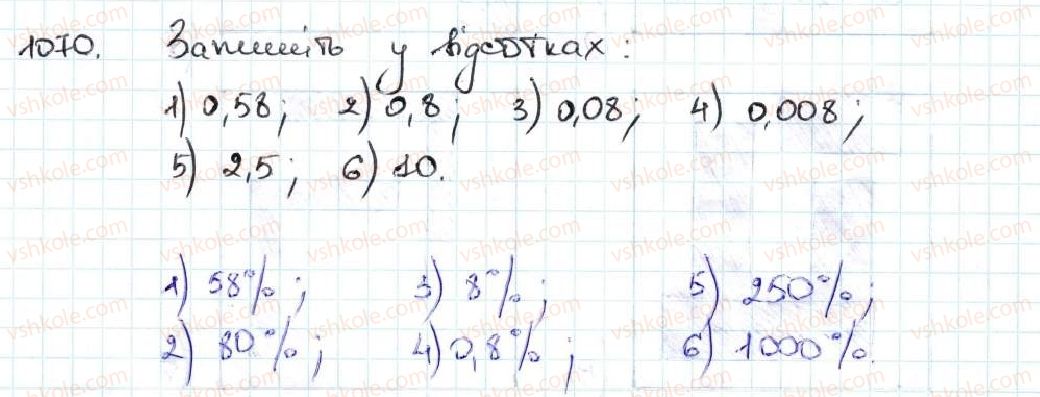 1070. Запишіть у відсотках:
1) 0,58; 2) 0,8; 3) 0,08; 4) 0,008;
5) 2,5; 6) 10.
1) 58%; 3) 8%; 5) 250%;
2) 80%; 4) 0,8%; 6) 1000%.